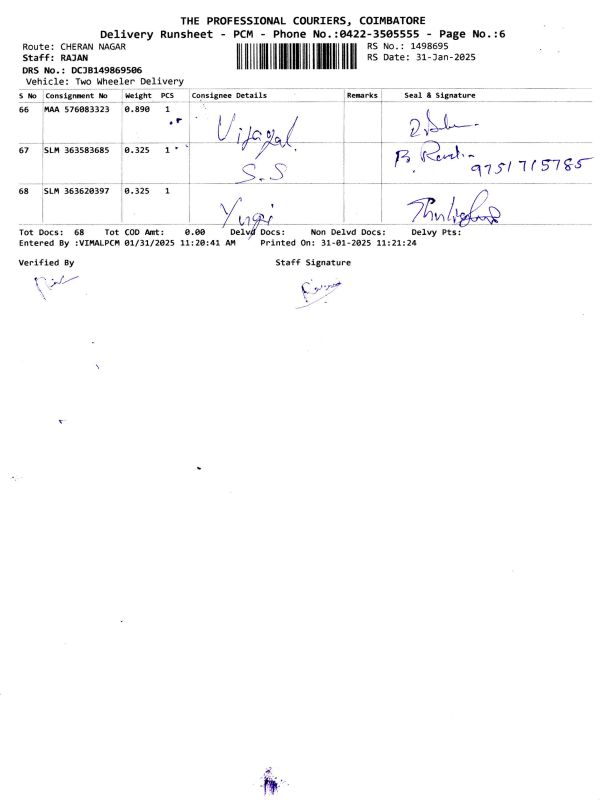 THE PROFESSIONAL COURIERS, COIMBATORE
Delivery Runsheet - PCM - Phone No.:0422-3505555 - Page No.:6
Route: CHERAN NAGAR RS No.: 1498695
Staff: RAJAN RS Date: 31-Jan-2025
DRS No.: DCJB149869506
Vehicle: Two Wheeler Delivery
S No Consignment No Weight PCS Consignee Details Remarks Seal & Signature
66 MAA 576083323 0.890 1
67 SLM 363583685 0.325 1 S.S 9751715785
68 SLM 363620397 0.325 1
Tot Docs: 68 Tot COD Amt: 0.00 Delvd Docs: Non Delvd Docs: Delvy Pts:
Entered By :VIMALPCM 01/31/2025 11:20:41 AM Printed On: 31-01-2025 11:21:24
Verified By Staff Signature